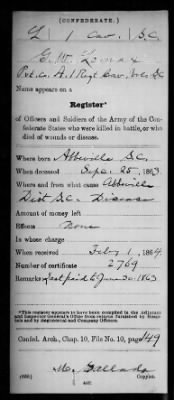 (CONFEDERATE.)
L | 1 | Cav. | S.C.
G. W. Lomax
Pvt. Co. A. 1 Regt Cav. Vols S.C.
Name appears on a
Register*
of Officers and Soldiers of the Army of the Con-
federate States who were killed in battle, or who
died of wounds or disease.
Where born Abbeville S.C.
When deceased Sept. 25, 1863.
Where and from what cause Abbeville
Dist. S.C. Disease
Amount of money left
Effects None
In whose charge
When received Feby 1, 1864.
Number of certificate 2769
Remarks: Last paid to June 30 1863
*This register appears to have been compiled in the Adjutant
and Inspector General's Office from returns furnished by Hospi-
tals and by Regimental and Company Officers.
Confed. Arch., Chap. 10, File No. 10, page 149
Copyist.